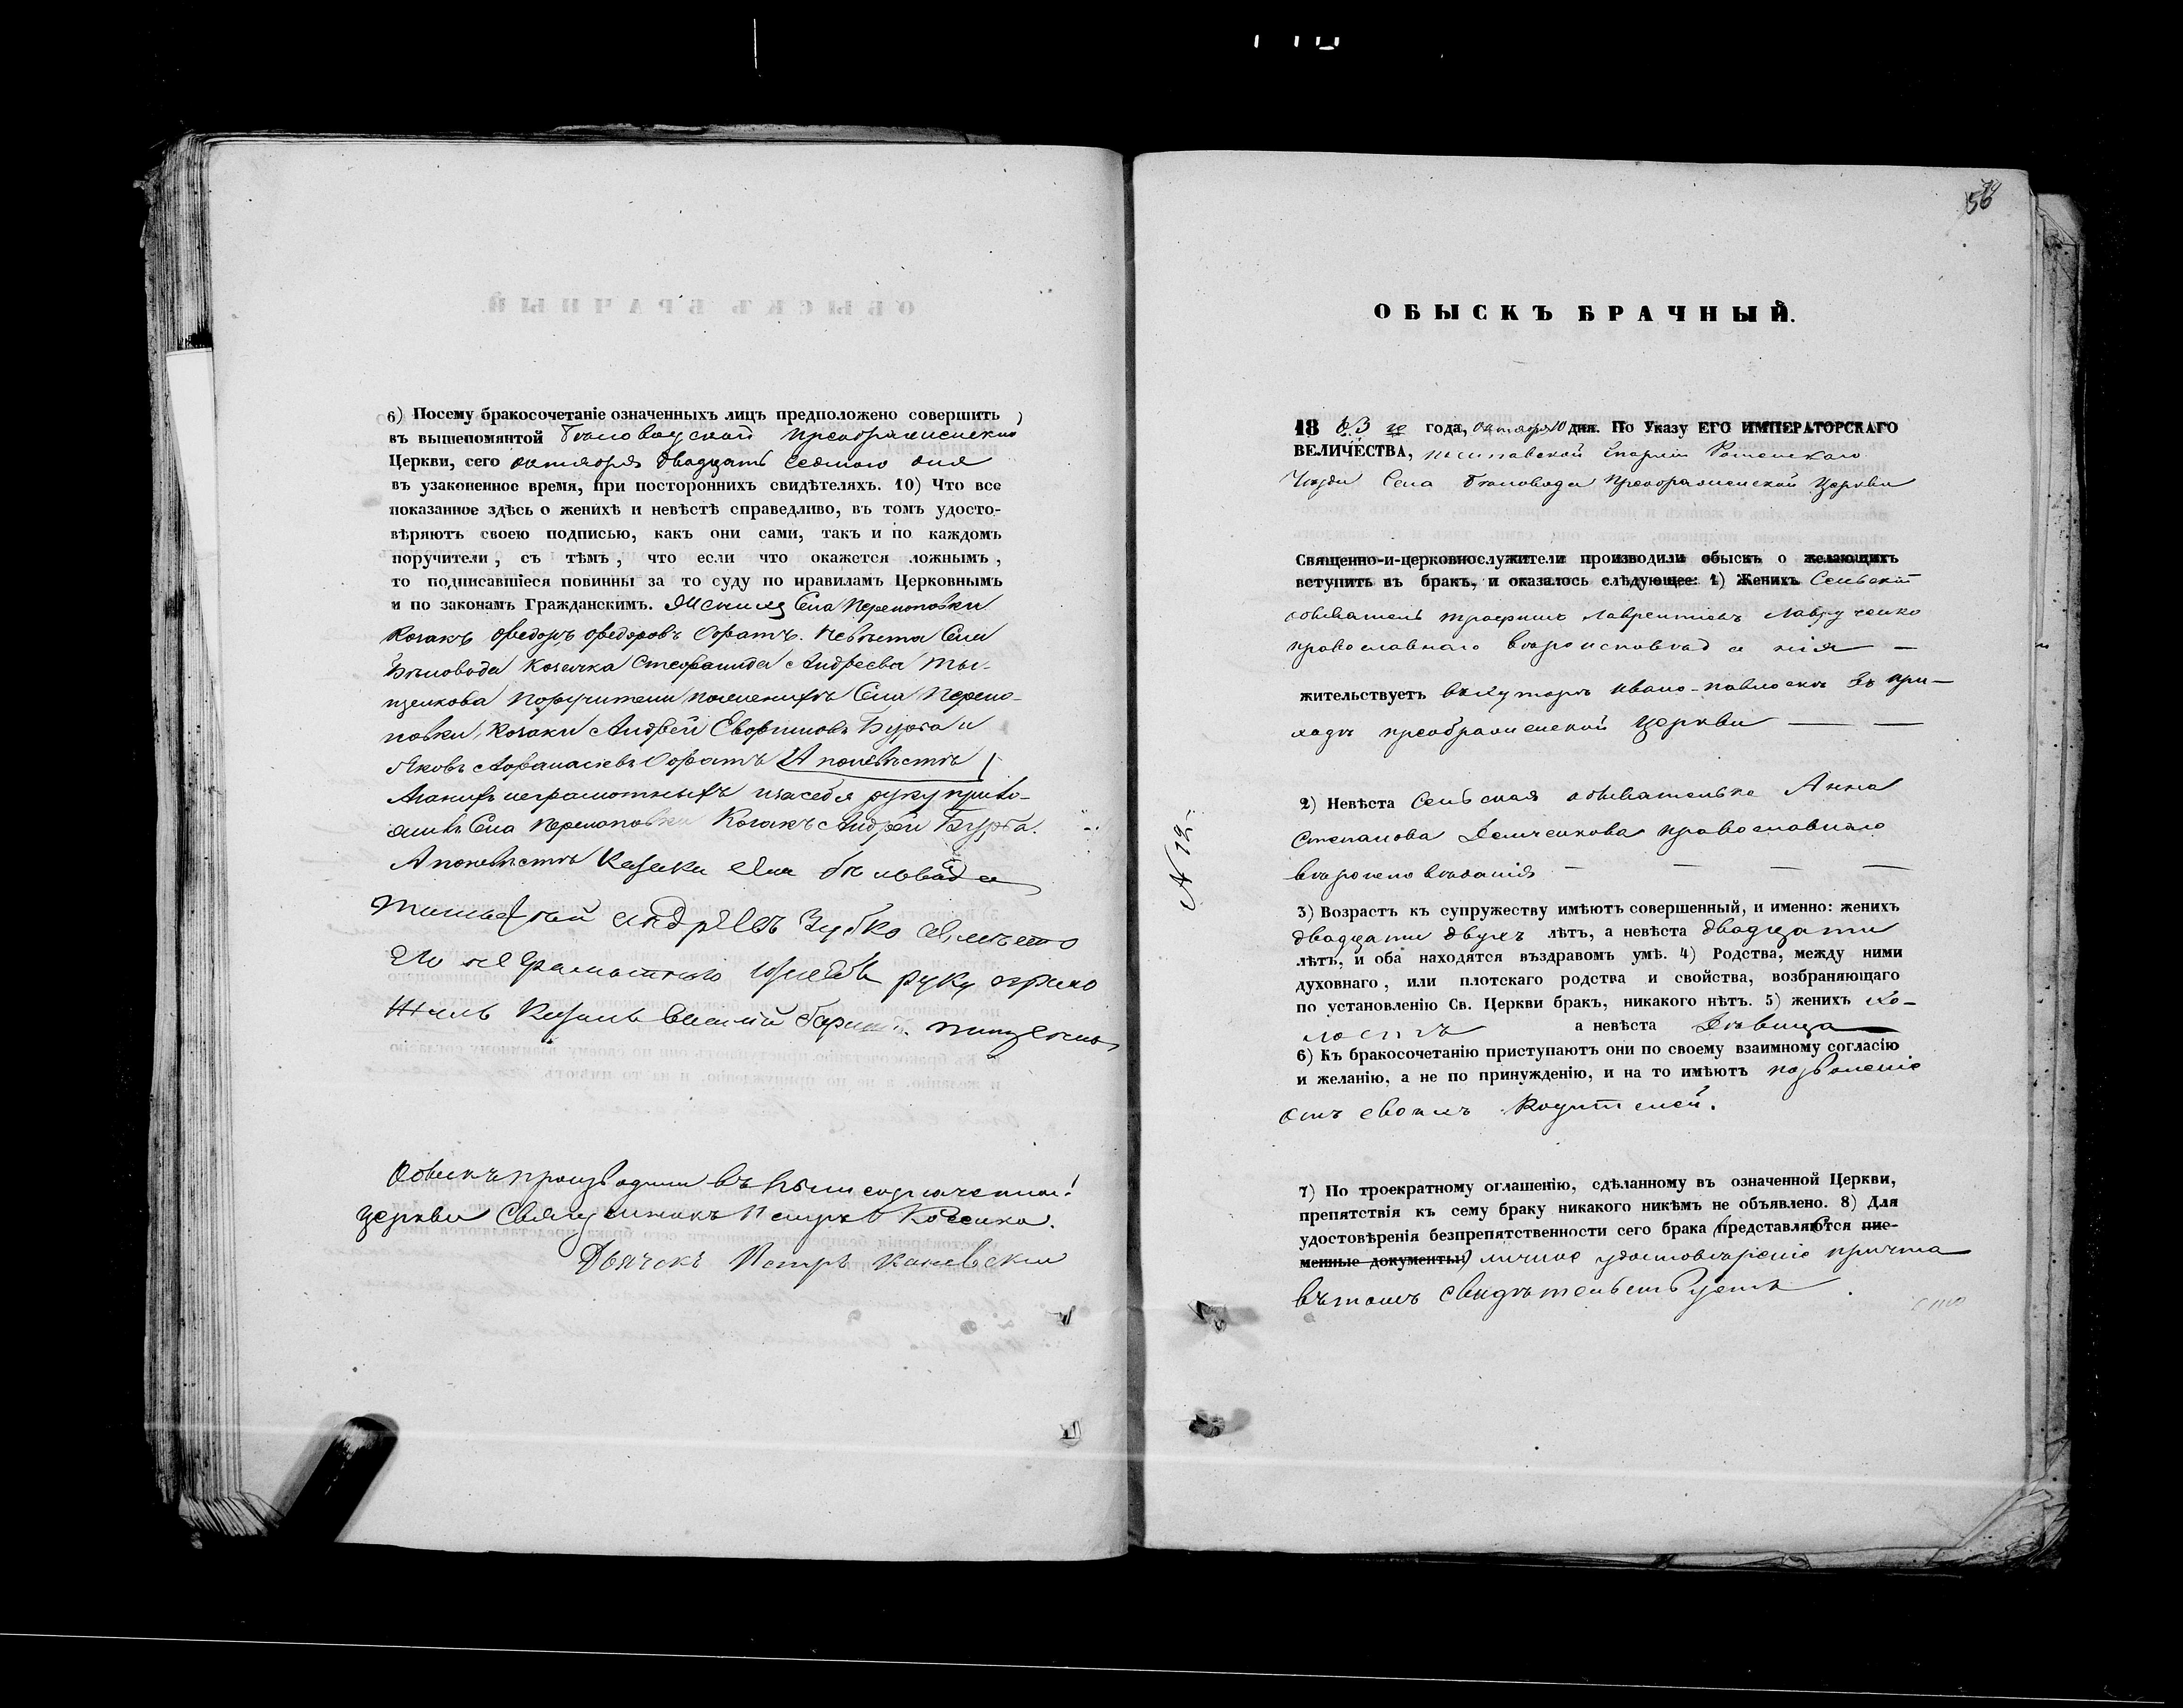 6) Посему бракосочетаніе означенныхъ лицъ предположено совершить
въ вышепомянтой Бѣловодской Преображенской
Церкви, сего октября двадцать седмого дня
въ узаконенное время, при постороннихъ свидѣтеляхъ. 10) Что все
показанное здѣсь о женихѣ и невѣстѣ справедливо, въ томъ удосто-
вѣряютъ своею подписью, какъ они сами, такъ и по каждомъ
поручители, съ тѣмъ, что если что окажется ложнымъ,
то подписавшіеся повинны за то суду по правиламъ Церковнымъ
и по законамъ Гражданскимъ. Женихъ Села Перекоповки
Козакъ Федоръ Федоровъ. Невѣста Села
Бѣловода Козачка Стефанида Андреева Ты-
щенкова Поручители по женихѣ Села Переко-
повки, Козаки Андрей Бурба и
Яковъ Афанасіевъ А по невѣстѣ
неграмотныхъ и за себя руку прило-
жилъ Села Перекоповки Козакъ Андрей Бурба.
А по невѣстѣ Козаки Села Бѣловода
Андрѣевъ Зубко а вместо
его не грамотного и за себя руку прило
жилъ Козакъ Василий Тищенко
Обыскъ производили въ означенной
церкви Священникъ Петръ Косенко.
Дьячекъ Петръ Каневский
56
ОБЫСКЪ БРАЧНЫЙ.
18 63 го года, октября 10 дня. По Указу ЕГО ИМПЕРАТОРСКАГО
ВЕЛИЧЕСТВА, Полтавской Епархіи Роменскаго
Уезда Села Бѣловода Преображенской Церкви
Священно-и-церковнослужители производили обыскъ о желающихъ
вступить въ бракъ, и оказалось слѣдующее: 1) Женихъ Сельскій
обыватель Трофимъ Лаврентіевъ Лавриченко
православнаго вѣроисповѣданія —
жительствуетъ въ хуторѣ Ивано-Павловскѣ въ при-
ходѣ преображенской церкви — —
2) Невѣста Сельская обывателька Анна
Степанова Демченкова православнаго
вѣроисповѣданія — — — —
3) Возрастъ къ супружеству имѣютъ совершенный, и именно: женихъ
двадцати двухъ лѣтъ, а невѣста двадцати
лѣтъ, и оба находятся въздравомъ умѣ. 4) Родства, между ними
духовнаго, или плотскаго родства и свойства, возбраняющаго
по установленію Св. Церкви бракъ, никакого нѣтъ. 5) женихъ хо-
лостъ а невѣста Дѣвица
6) Къ бракосочетанію приступаютъ они по своему взаимному согласію
и желанію, а не по принужденію, и на то имѣютъ позволеніе
отъ своихъ Родителей.
N 19.
7) По троекратному оглашенію, сдѣланному въ означенной Церкви,
препятствія къ сему браку никакого никѣмъ не объявлено. 8) Для
удостовѣренія безпрепятственности сего брака представляются пис-
менные документы: личное удостовѣреніе причта
въ томъ свидѣтельствуетъ.